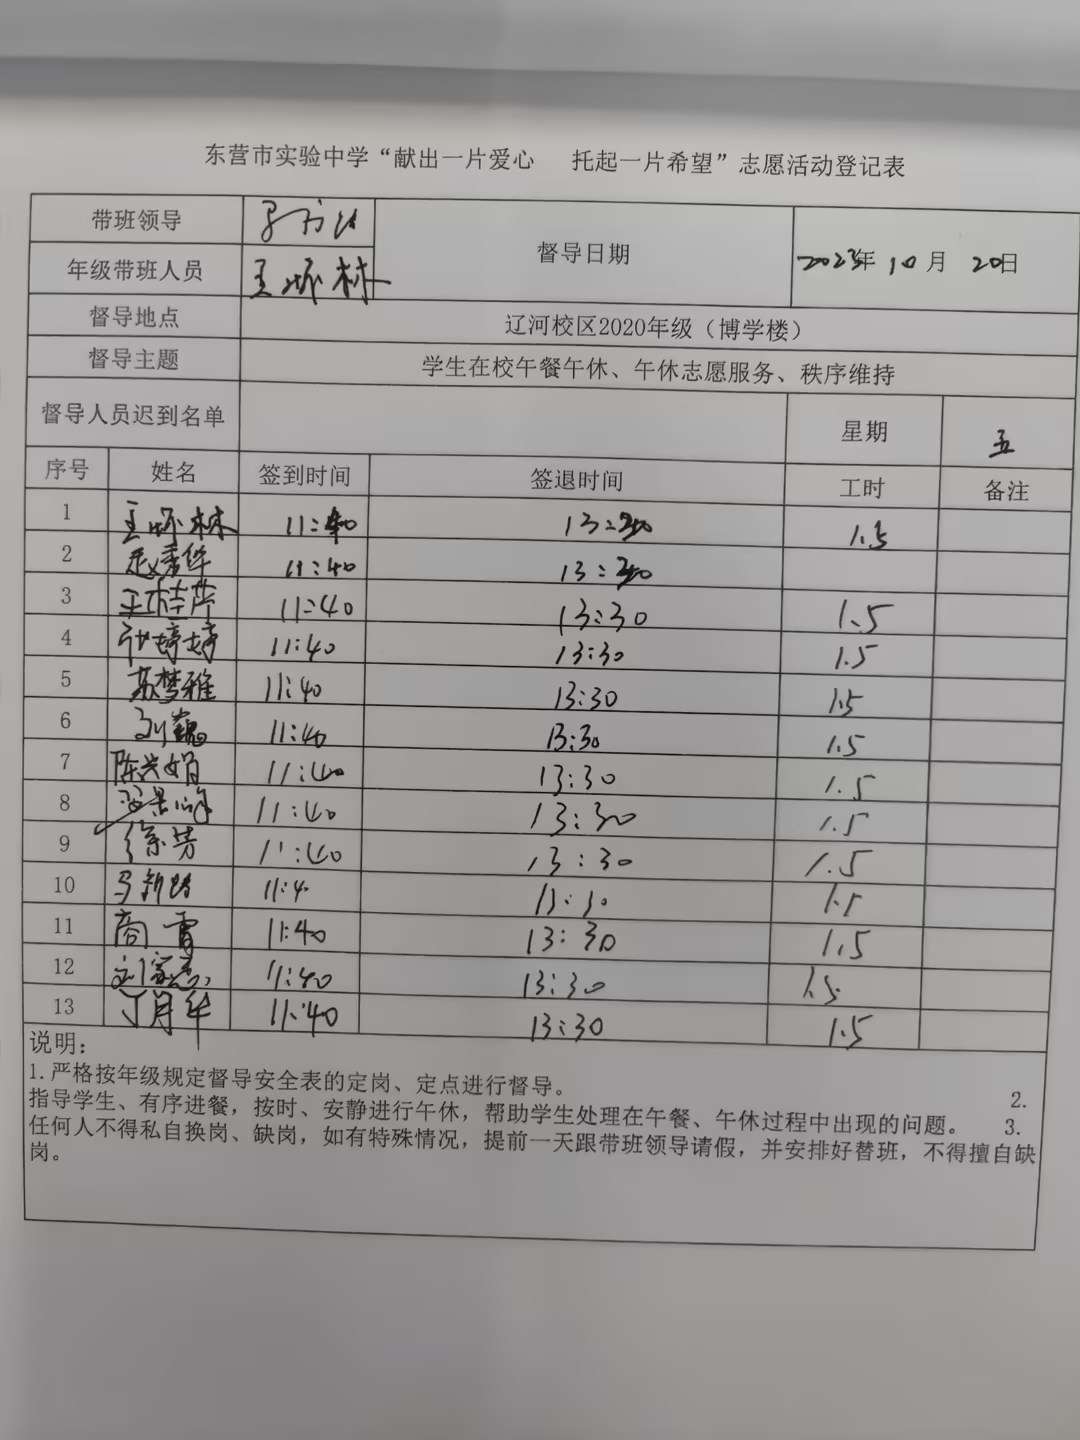 东营市实验中学“献出一片爱心 托起一片希望”志愿活动登记表
带班领导 督导日期 2023年 10月 20日
年级带班人员 王 林
督导地点 辽河校区2020年级（博学楼）
督导主题 学生在校午餐午休、午休志愿服务、秩序维持
督导人员迟到名单 星期 五
序号 姓名 签到时间 签退时间 工时 备注
1 王 林 11:40 13:30 1.5
2 赵秀华 11:40 13:30
3 王桂芹 11:40 13:30 1.5
4 张婷婷 11:40 13:30 1.5
5 苏梦雅 11:40 13:30 1.5
6 刘巍 11:40 13:30 1.5
7 陈兴娟 11:40 13:30 1.5
8 11:40 13:30 1.5
9 徐芳 11:40 13:30 1.5
10 马新 11:4 13:30 1.5
11 商雪 11:40 13:30 1.5
12 刘家 11:40 13:30 1.5
13 丁月华 11:40 13:30 1.5
说明：
1.严格按年级规定督导安全表的定岗、定点进行督导。 2.
指导学生、有序进餐，按时、安静进行午休，帮助学生处理在午餐、午休过程中出现的问题。 3.
任何人不得私自换岗、缺岗，如有特殊情况，提前一天跟带班领导请假，并安排好替班，不得擅自缺
岗。